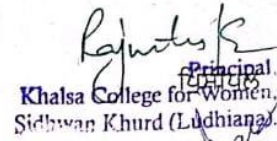 Principal,
Khalsa College for Women,
Sidhwan Khurd (Ludhiana).